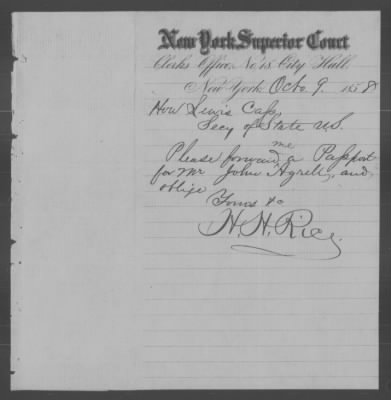 New York Superior Court
Clerks Office, No. 18 City Hall
New York Octo. 9. 1858
Hon Lewis Cass
Secy of State U.S.
me
Please forward a Passport
for Mr John Agrell, and
oblige
Yours &c
H. H. Rice